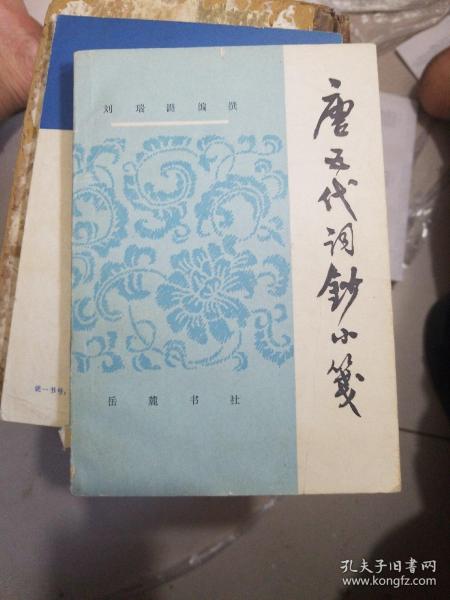 刘瑞潞编撰
唐五代词钞小笺
岳麓书社
统一书号:
孔夫子旧书网
www.kongfz.com